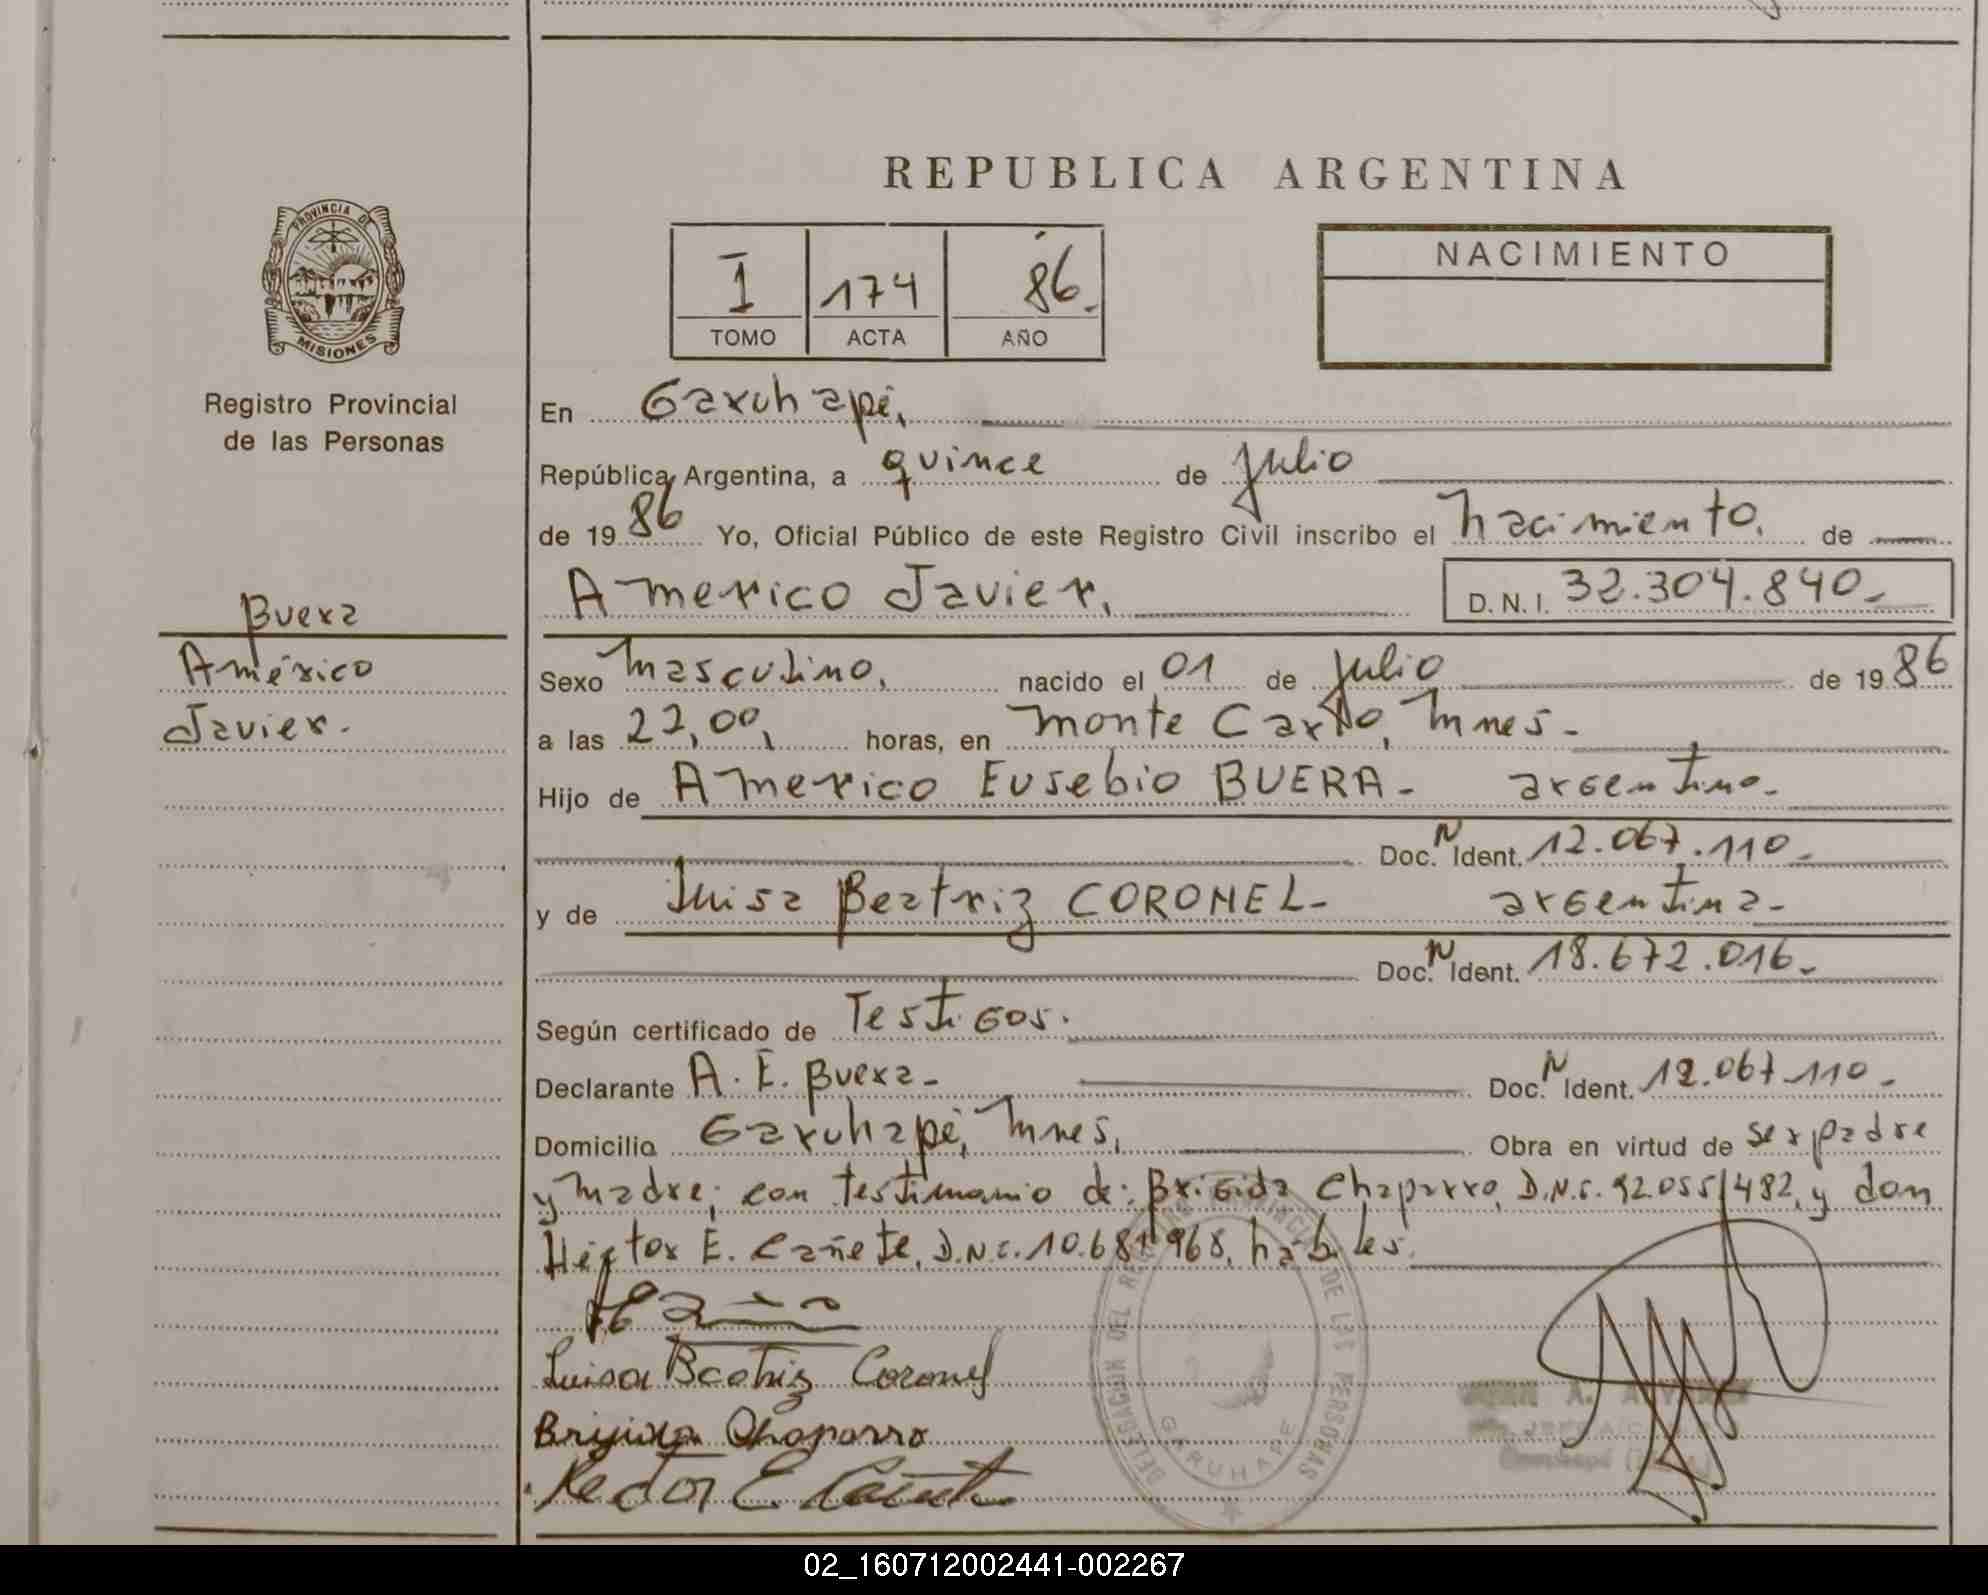 REPUBLICA ARGENTINA
PROVINCIA DE
MISIONES
Registro Provincial
de las Personas
I 174 86.
TOMO ACTA AÑO
NACIMIENTO
En Garuhapé,
República Argentina, a quince de Julio
de 1986 Yo, Oficial Público de este Registro Civil inscribo el nacimiento. de
Americo Javier, D.N.I. 32.304.840-
Buera
Américo
Javier.
Sexo masculino, nacido el 01 de Julio de 1986
a las 22,00, horas, en Monte Carlo, Mnes-
Hijo de Americo Eusebio BUERA- argentino-
Doc. N Ident. 12.067.110-
y de Luisa Beatriz CORONEL- argentina-
Doc. N Ident. 18.672.016-
Según certificado de Testigos.
Declarante A. E. Buera- Doc. N Ident. 12.067.110-
Domicilio Garuhapé, Mnes, Obra en virtud de ser padre
y madre; con testimonio de: Brigida Chaparro, D.N.I. 92.055.482, y don
Héctor E. Cañete, D.N.I. 10.681.968, habiles.
Luisa Beatriz Coronel
Brijida Chaparro
Hector E. Cañete
DELEGACION DEL REGISTRO PROVINCIAL DE LAS PERSONAS
GARUHAPE
02_160712002441-002267